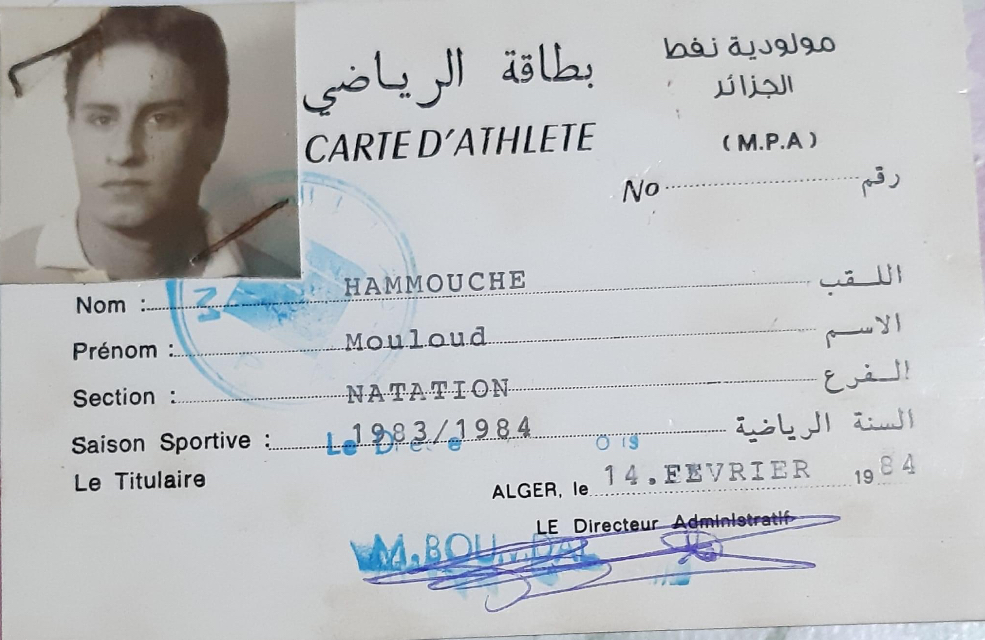 بطاقة الرياضي
CARTE D'ATHLETE
مولودية نفط
الجزائر
(M.P.A)
No رقم
Nom : HAMMOUCHE اللقب
Prénom : Mouloud الاسم
Section : NATATION الفرع
Saison Sportive : 1983/1984 السنة الرياضية
Le Titulaire
ALGER, le 14.FEVRIER 1984
LE Directeur Administratif